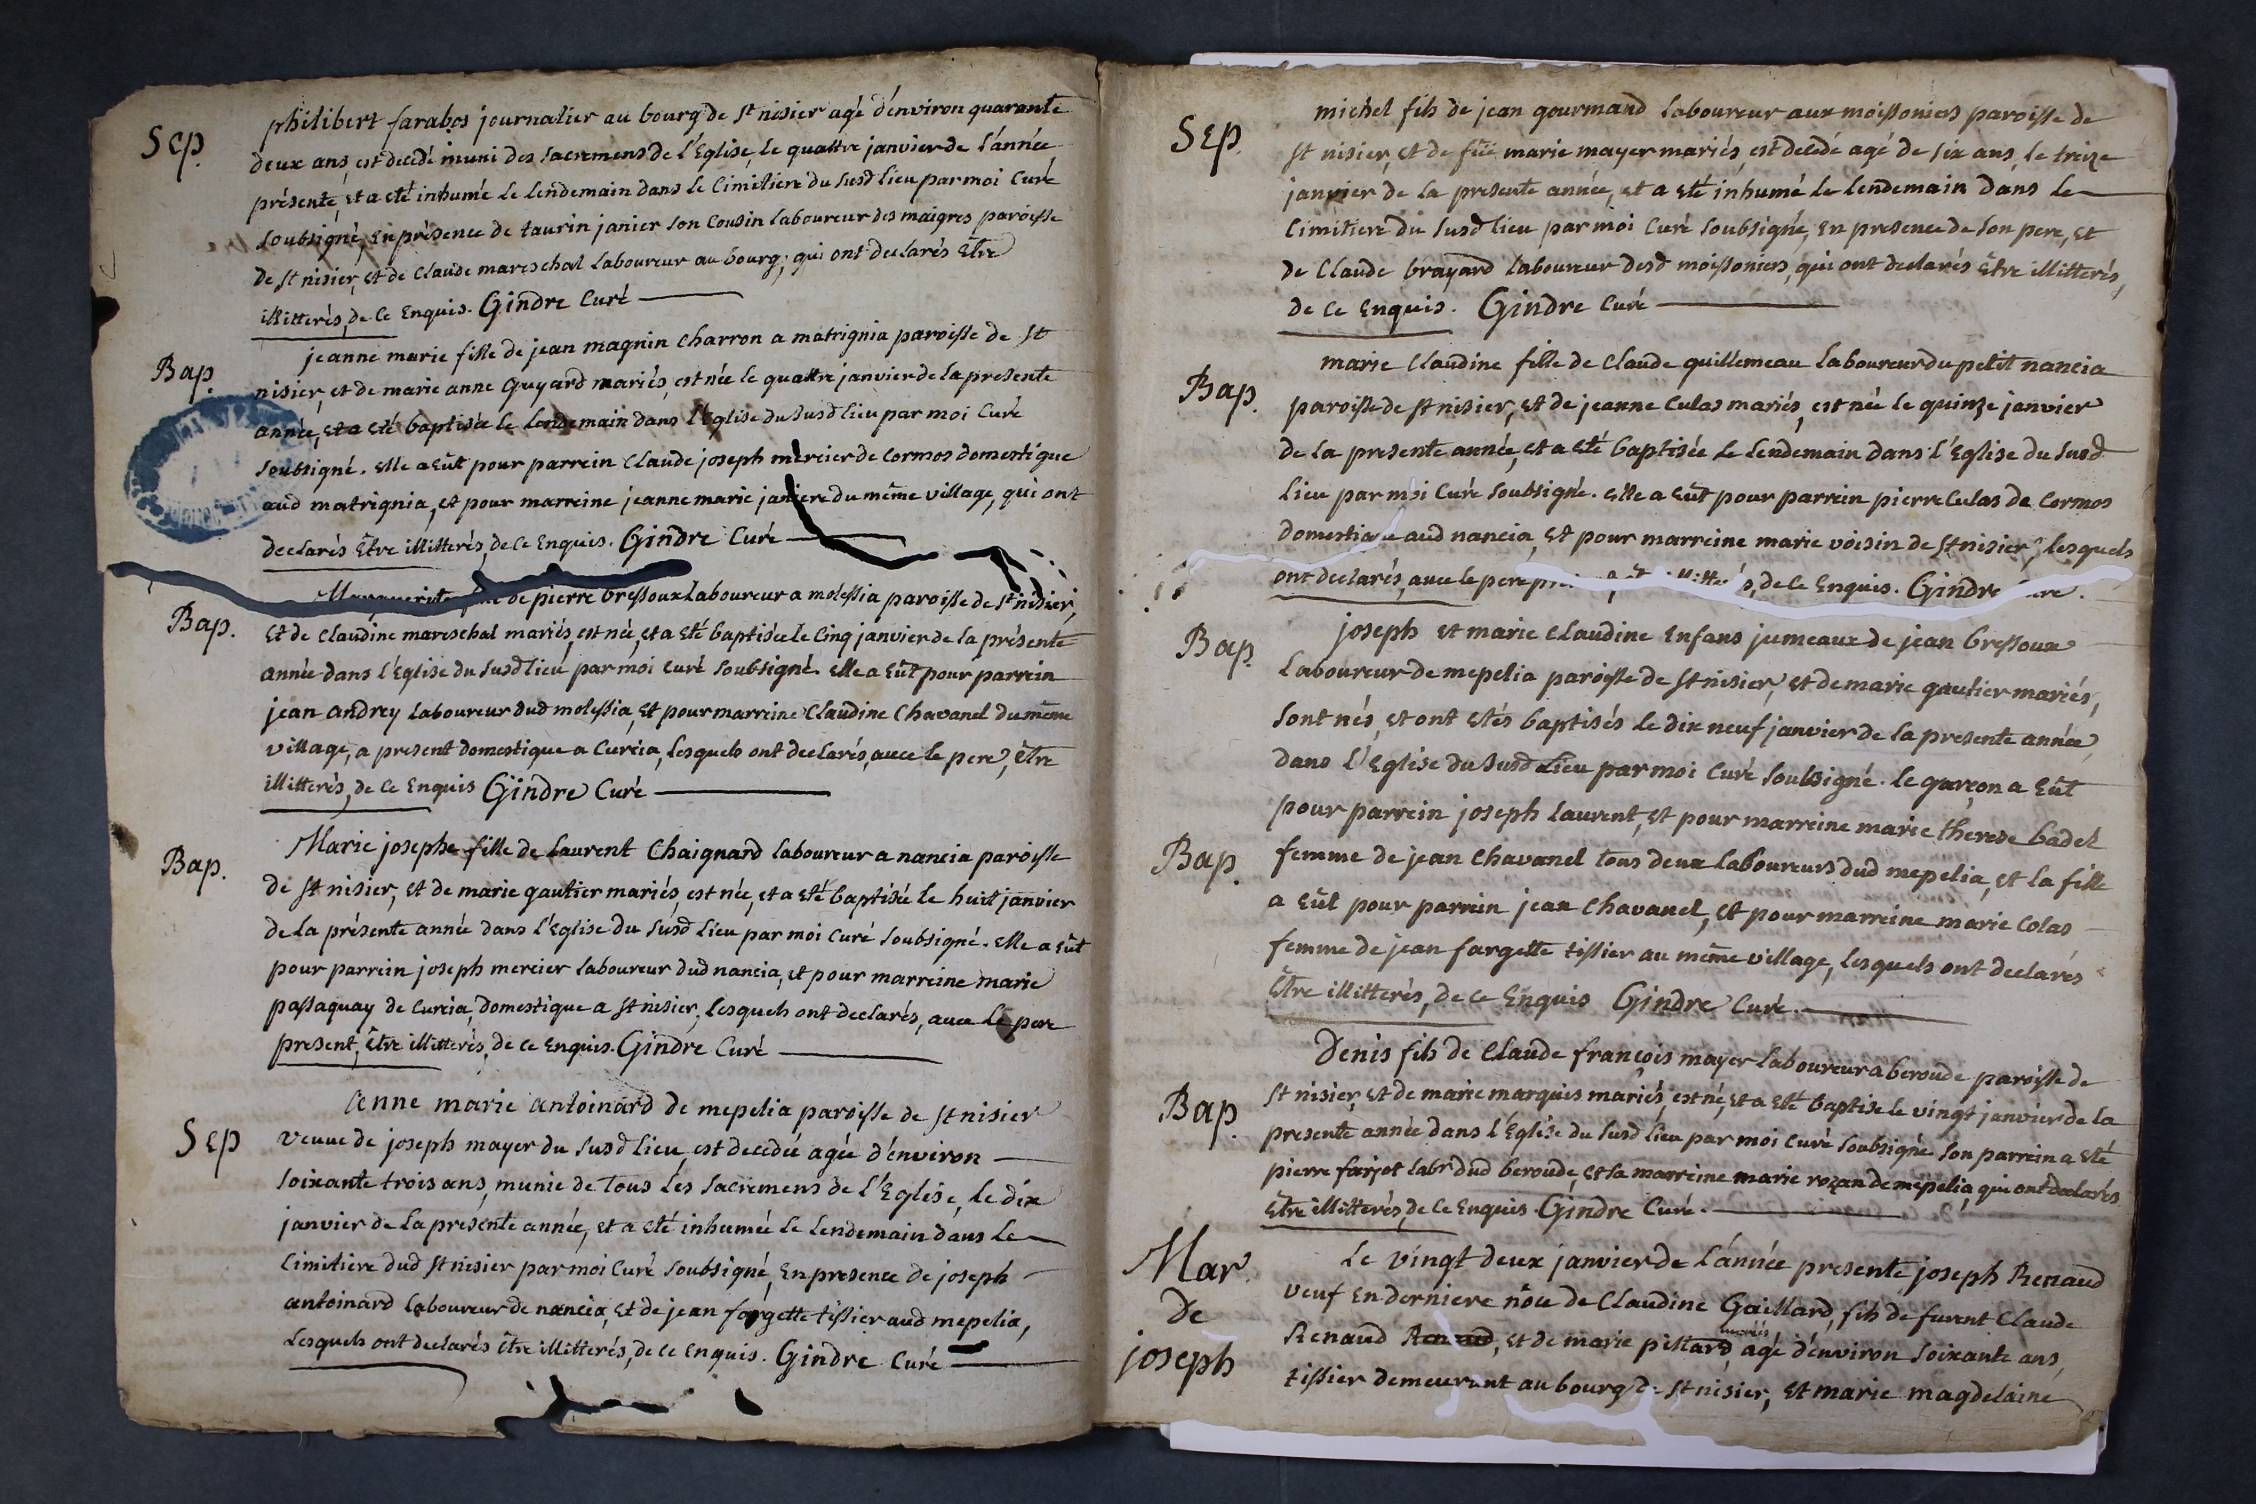 Sep.
philibert farabos journalier au bourg de st nisier agé d'environ quarante
deux ans, est decedé muni des sacremens de l'Eglise, le quattre janvier de l'année
présente, et a eté inhumé le lendemain dans le Cimitiere du susd lieu par moi Curé
soubsigné, en présence de taurin janier son Cousin laboureur des maigres paroisse
de st nisier, et de Claude mareschal laboureur au bourg, qui ont declarés Etre
illitterés, de ce Enquis. Gindre Curé
Bap.
jeanne marie fille de jean magnin Charron a matrignia paroisse de st
nisier, et de marie anne Guyard mariés, est née le quattre janvier de la presente
année, et a eté baptisée le lendemain dans l'Eglise du susd lieu par moi Curé
soubsigné. Elle a Eût pour parrein Claude joseph mercier de Cormos domestique
aud matrignia, et pour marreine jeanne marie janiere du même village, qui ont
declarés Etre illitterés, de ce Enquis. Gindre Curé
Bap.
Marguerite de pierre bressoux laboureur a molessia paroisse de st nisier,
et de Claudine mareschal mariés, est née, et a eté baptisée le Cinq janvier de la présente
année dans l'Eglise du susd lieu par moi Curé soubsigné. Elle a Eût pour parrein
jean andrey laboureur dud molessia, et pour marreine Claudine Chavanel du même
village, a present domestique a Curcia, lesquels ont declarés, avec le pere, être
illitterés, de ce Enquis Gindre Curé
Bap.
Marie josephe fille de laurent Chaignard laboureur a nancia paroisse
de st nisier, et de marie gautier mariés, est née, et a eté baptisée le huit janvier
de la présente année dans l'Eglise du susd lieu par moi Curé soubsigné. Elle a Eût
pour parrein joseph mercier laboureur dud nancia, et pour marreine marie
passaquay de Curcia, domestique a st nisier, lesquels ont declarés, avec le pere
present, être illitterés, de ce Enquis. Gindre Curé
Sep
anne marie antoinard de mepelia paroisse de st nisier
veuve de joseph mayer du susd lieu, est decedée agée d'environ
soixante trois ans, munie de tous les sacremens de l'Eglise, le dix
janvier de la présente année, et a eté inhumée le lendemain dans le
Cimitiere dud st nisier par moi Curé soubsigné, En presence de joseph
antoinard laboureur de nancia, et de jean fargette tissier aud mepelia,
Lesquels ont declarés être illitterés, de ce Enquis. Gindre Curé
Sep.
michel fils de jean gourmand laboureur aux moissoniers paroisse de
st nisier, et de fûe marie mayer mariés, est decedé agé de six ans, le treize
janvier de la presente année, et a eté inhumé le lendemain dans le
Cimitiere du susd lieu par moi Curé soubsigné, En presence de son pere, et
de Claude brayard laboureur desd moissoniers, qui ont declarés être illitterés,
de ce Enquis. Gindre Curé
Bap.
marie Claudine fille de Claude quillemeau laboureur du petit nancia
paroisse de st nisier, et de jeanne Culas mariés, est née le quinze janvier
de la presente année, et a eté baptisée le lendemain dans l'Eglise du susd
lieu par moi Curé soubsigné. Elle a Eût pour parrein pierre Culas de Cormos
domestique aud nancia, et pour marreine marie voisin de st nisier, lesquels
ont declarés, avec le pere de ce Enquis. Gindre
Bap.
joseph et marie Claudine Enfans jumeaux de jean bressoux
Laboureur de mepelia paroisse de st nisier, et de marie gautier mariés,
sont nés, et ont etés baptisés le dix neuf janvier de la presente année,
dans l'Eglise du susd Lieu par moi Curé soubsigné. le garçon a Eût
pour parrein joseph laurent, et pour marreine marie therese badet
Bap.
femme de jean Chavanel tous deux laboureurs dud mepelia, et la fille
a Eût pour parrein jean Chavanel, et pour marreine marie Colas
femme de jean fargette tissier au même village, lesquels ont declarés
Etre illitterés, de ce Enquis Gindre Curé.
Bap.
Denis fils de Claude françois mayer laboureur a beroude paroisse de
st nisier, et de marie marquis mariés, est né, et a eté baptisé le vingt janvier de la
presente année dans l'Eglise du susd lieu par moi Curé soubsigné son parrein a eté
pierre farjot labr dud beroude, et sa marreine marie rozan de mepelia, qui ont declarés
Etre illitterés, de ce Enquis. Gindre Curé.
Mar.
De
joseph
Le vingt deux janvier de l'année presente joseph Renaud
veuf En derniere nôce de Claudine Gaillard, fils de furent Claude
Renaud Renaud, et de marie pillard mariés, agé d'environ soixante ans,
tissier demeurant au bourg de st nisier, et marie magdelaine